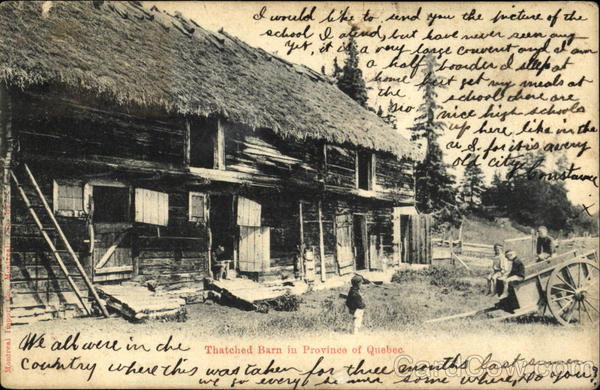 I would like to send you the picture of the
school I atend, but have never seen any
yet, it is a very large convent and I am
a half boarder I sleep at
home but get my meals at
the school there are
no nice high schools
up here like in the
U. S. for it is a very
old city.
Constance
X
Thatched Barn in Province of Quebec
We all were in the
Country where this was taken for three months last summer
we go every summer some where do you?
Montreal Import Co., Montreal
CardCow.com